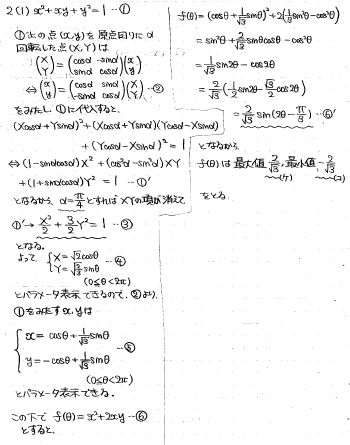 2 (1) x²+xy+y²=1 …①
①上の点(x,y)を原点回りにα
回転した点(X,Y)は
(X Y) = (cosα -sinα sinα cosα)(x y)
⇔(x y) = (cosα sinα -sinα cosα)(X Y) …②
をみたし、①に代入すると、
(Xcosα+Ysinα)²+(Xcosα+Ysinα)(Ycosα-Xsinα)
+(Ycosα-Xsinα)²=1
⇔(1-sinαcosα)X²+(cos²α-sin²α)XY
+(1+sinαcosα)Y²=1 …①'
となるから、α=π/4とすればXYの項が消えて
①'→ X²/2 + 3/2 Y²=1 …③
となる。
よって、{X=√2cosθ
Y=√(2/3)sinθ …④
(0≤θ<2π)
とパラメータ表示できるので、②より、
①をみたすx,yは
{x= cosθ+1/√3 sinθ
…⑤
y=-cosθ+1/√3 sinθ
(0≤θ<2π)
とパラメータ表示できる。
この下で f(θ)=x²+2xy …⑥
とすると、
f(θ)=(cosθ+1/√3 sinθ)²+2(1/3 sin²θ-cos²θ)
=sin²θ+2/√3 sinθcosθ-cos²θ
=1/√3 sin2θ-cos2θ
=2/√3(1/2 sin2θ-√3/2 cos2θ)
=2/√3 sin(2θ-π/3) …⑥'
となるから、
f(θ)は最大値2/√3、最小値-2/√3
(ケ) (コ)
をとる。